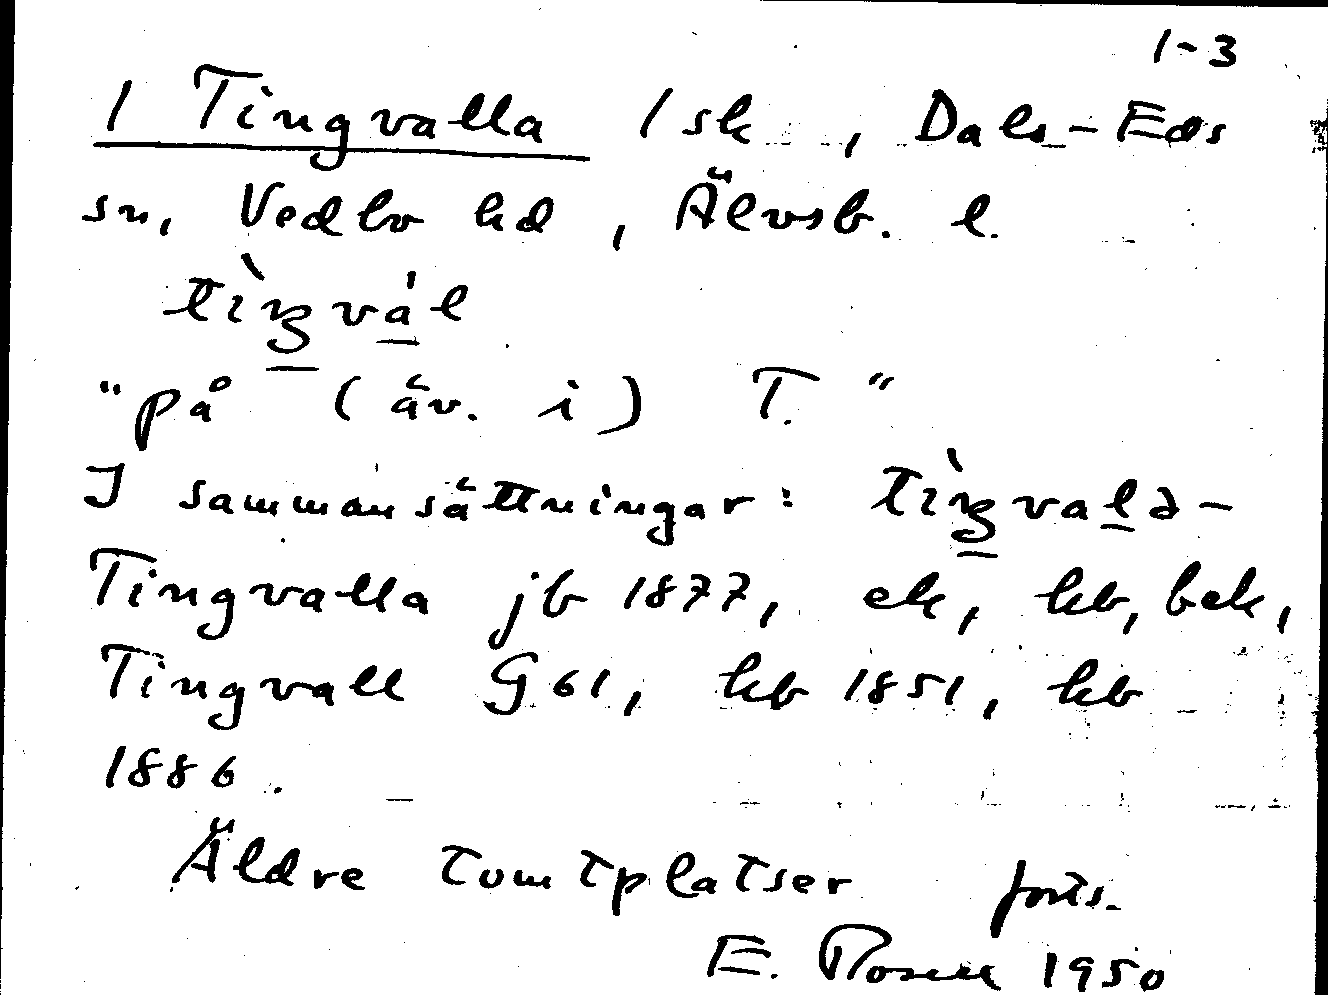 1-3
1 Tingvalla 1 sk, Dals-Eds
sn, Vedbo hd, Älvsb. l.
tìŋvál
"på (äv. i) T."
I sammansättningar: tìŋvalə-
Tingvalla jb 1877, ek, kb, bek,
Tingvall G 61, kb 1851, kb
1886.
Äldre tomtplatser forts.
E. Rosell 1950